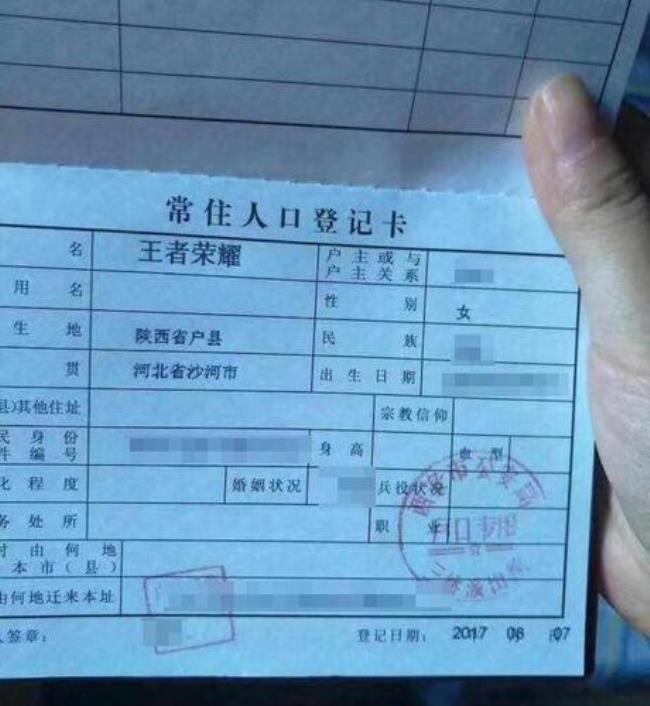 常住人口登记卡
名 王者荣耀 户主或与户主关系
用名 性别 女
生地 陕西省户县 民族
贯 河北省沙河市 出生日期
县)其他住址 宗教信仰
民身份件编号 身高 血型
化程度 婚姻状况 兵役状况
务处所 职业
时由何地本市(县)
由何地迁来本址
人签章: 登记日期: 2017 08 07
市公安局
户口专用